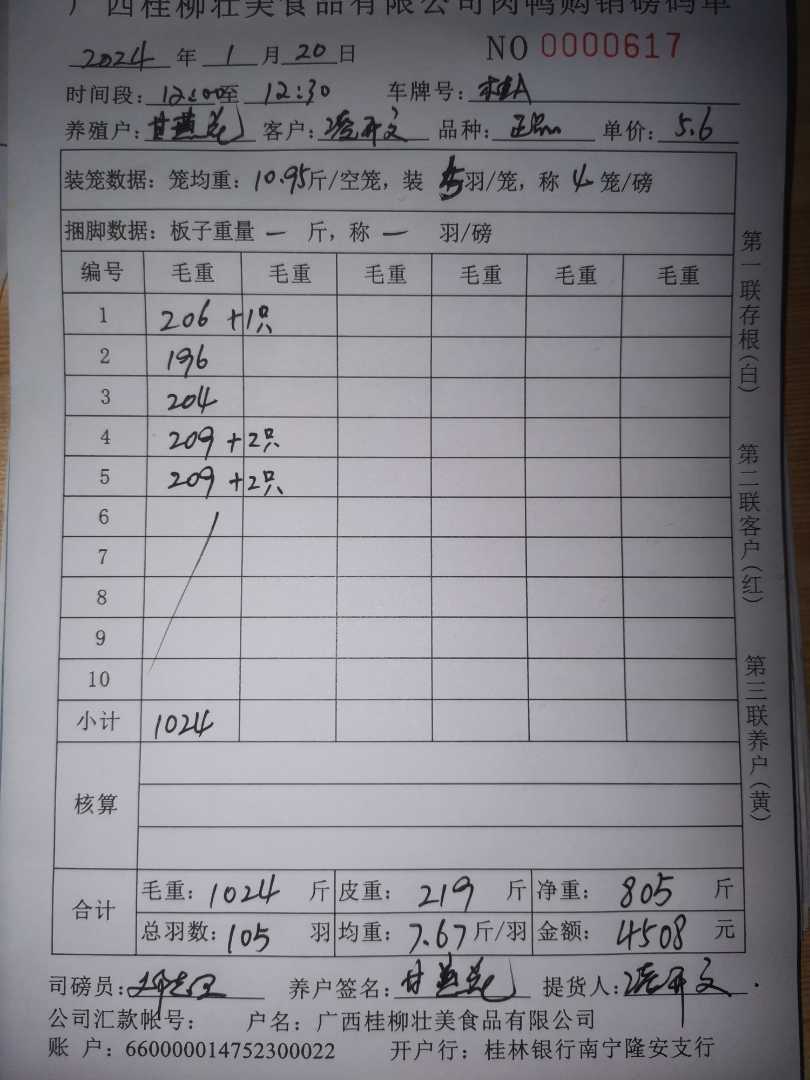 广西桂柳壮美食品有限公司肉鸭购销磅码单
2024 年 1 月 20 日 NO 0000617
时间段: 12:00至 12:30 车牌号: 桂A
养殖户: 甘燕 客户: 开文 品种: 正品 单价: 5.6
装笼数据: 笼均重: 10.95斤/空笼, 装 5羽/笼, 称 4 笼/磅
捆脚数据: 板子重量 一 斤, 称 一 羽/磅
编号 毛重 毛重 毛重 毛重 毛重 毛重
1 206 +1只
2 196
3 204
4 209 +2只
5 209 +2只
6
7
8
9
10
小计 1024
核算
合计 毛重: 1024 斤 皮重: 219 斤 净重: 805 斤
总羽数: 105 羽 均重: 7.67斤/羽 金额: 4508 元
司磅员: 养户签名: 甘燕 提货人: 开文
公司汇款帐号: 户名: 广西桂柳壮美食品有限公司
账 户: 660000014752300022 开户行: 桂林银行南宁隆安支行
第一联存根(白)
第二联客户(红)
第三联养户(黄)